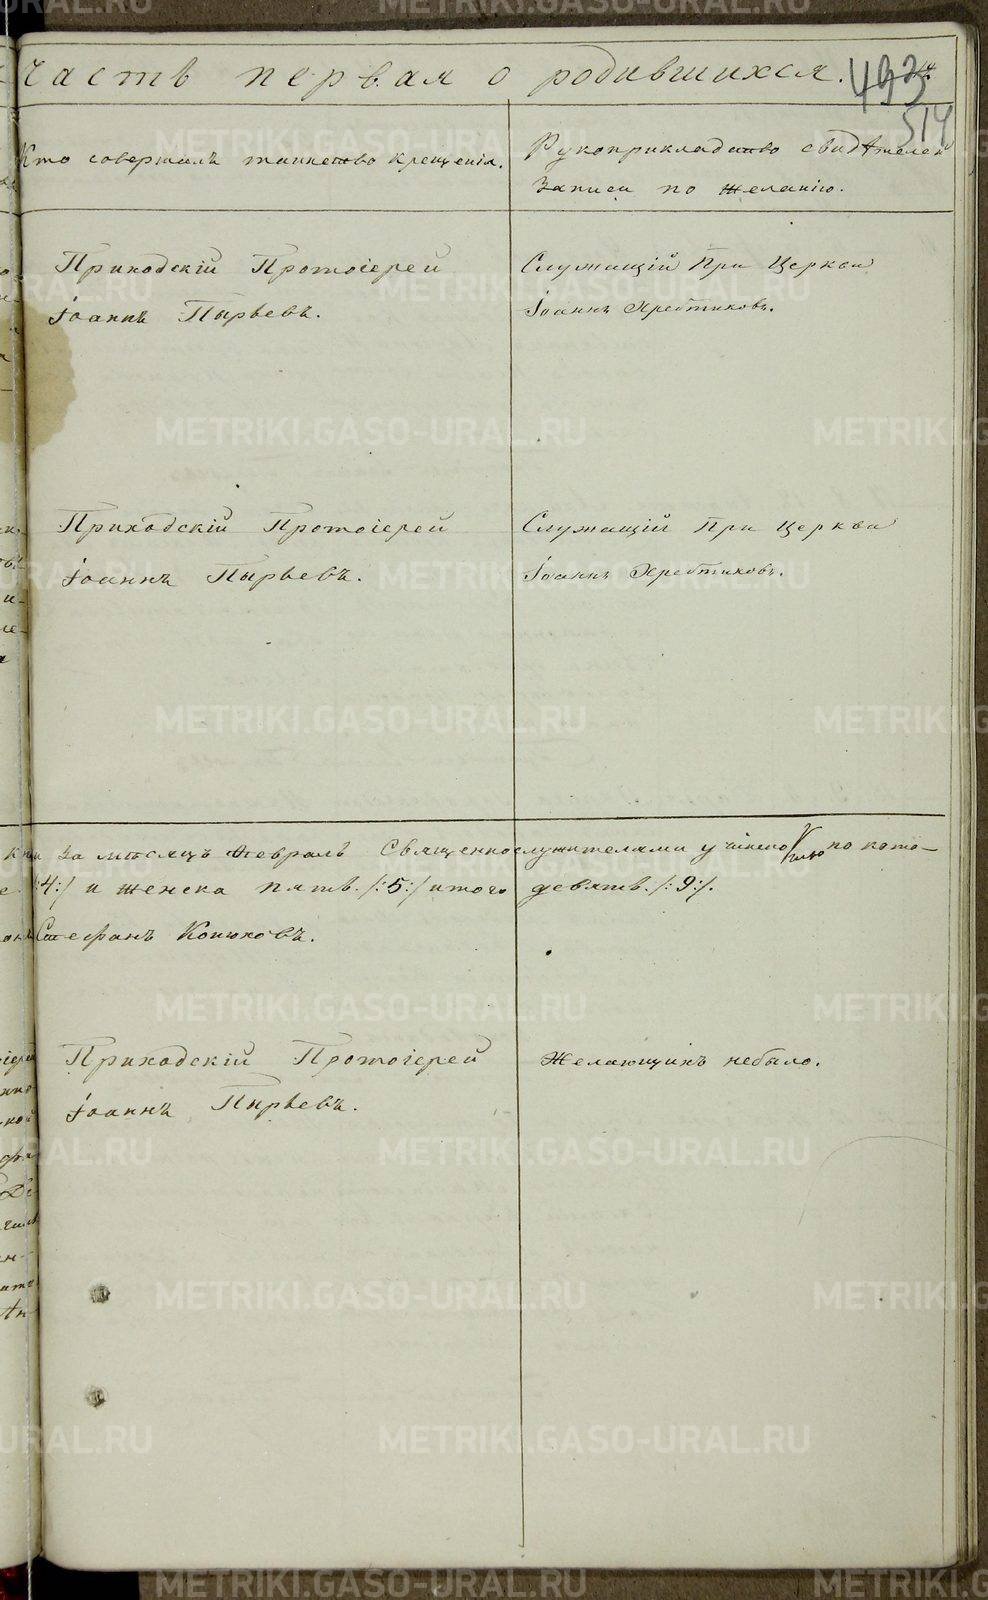 Часть первая о родившихся.
493
514
Кто совершалъ таинство крещенія.
Рукоприкладство свидѣтелей
записи по желанію.
Приходскій Протоіерей
Іоаннъ Пырьевъ.
Служащій При Церкви
Іоаннъ Хребтиковъ.
Приходскій Протоіерей
Іоаннъ Пырьевъ.
Служащій При Церкви
Іоаннъ Хребтиковъ.
за мѣсяцъ Февраль Священнослужителями учинено по кото-
/:4:/ и женска пять. /:5:/ итого девять. /:9:/.
Стефанъ Конюховъ.
Приходскій Протоіерей
Іоаннъ Пырьевъ.
Желающихъ небыло.
METRIKI.GASO-URAL.RU